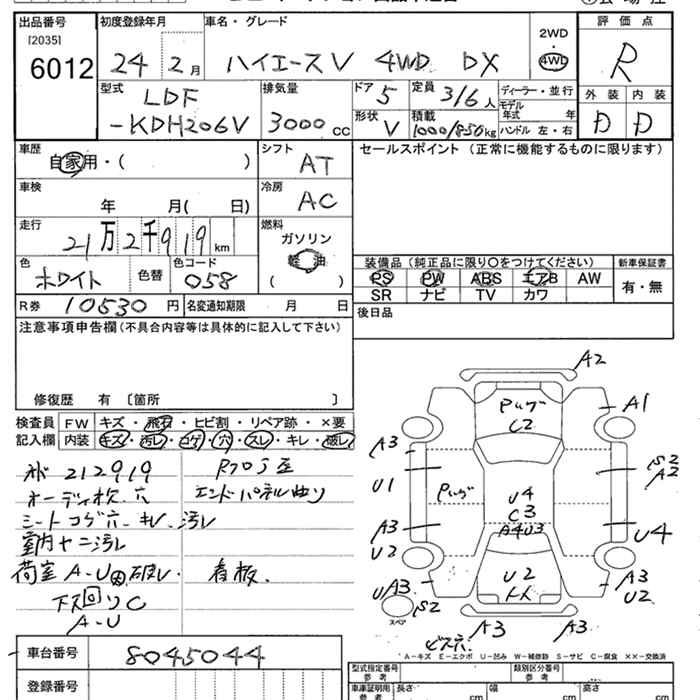 出品番号 初度登録年月 車名・グレード 2WD 評価点
[2035]
6012 24 2月 ハイエースV 4WD DX 4WD R
型式 排気量 ドア 5 定員 3/6人 ディーラー・並行 外装 内装
LDF モデル年式 年
-KDH206V 3000cc 形状 V 積載 1000/850kg ハンドル 左・右 D D
車歴 シフト セールスポイント (正常に機能するものに限ります)
自家用・( ) AT
車検 冷房
年 月( 日) AC
走行 燃料
21万2千919km ガソリン
色 色コード 軽油 装備品 (純正品に限り○をつけてください) 新車保証書
ホワイト 色替 058 ( ) PS PW ABS エアB AW 有・無
R券 10530円 名変通知期限 月 日 SR ナビ TV カワ
注意事項申告欄(不具合内容等は具体的に記入して下さい) 後日品
修復歴 有 〔箇所 〕
検査員 FW キズ・飛石・ヒビ割・リペア跡・×要
記入欄 内装 キズ・汚レ・コゲ・穴・スレ・キレ・破レ
212919
オーディオ枕穴 エンドパネル曲り
シートコゲ穴・キレ・汚レ
室内ヤニ汚レ
荷室 A-U 大 破レ. 看板.
下回りC
A-U
A2
A1
C2
A3
S2
A2
U1
U4
C3
A4U3
A3
U2
U4
U2
UA3
S2
スペア
A3
U2
A3
A3
ビス穴
A-キズ E-エクボ U-凹み W-補修跡 S-サビ C-腐食 ××-交換済
車台番号 8045044
登録番号
型式指定番号 参考 類別区分番号 参考
車庫証明用 参考 長さ cm 幅 cm 高さ cm